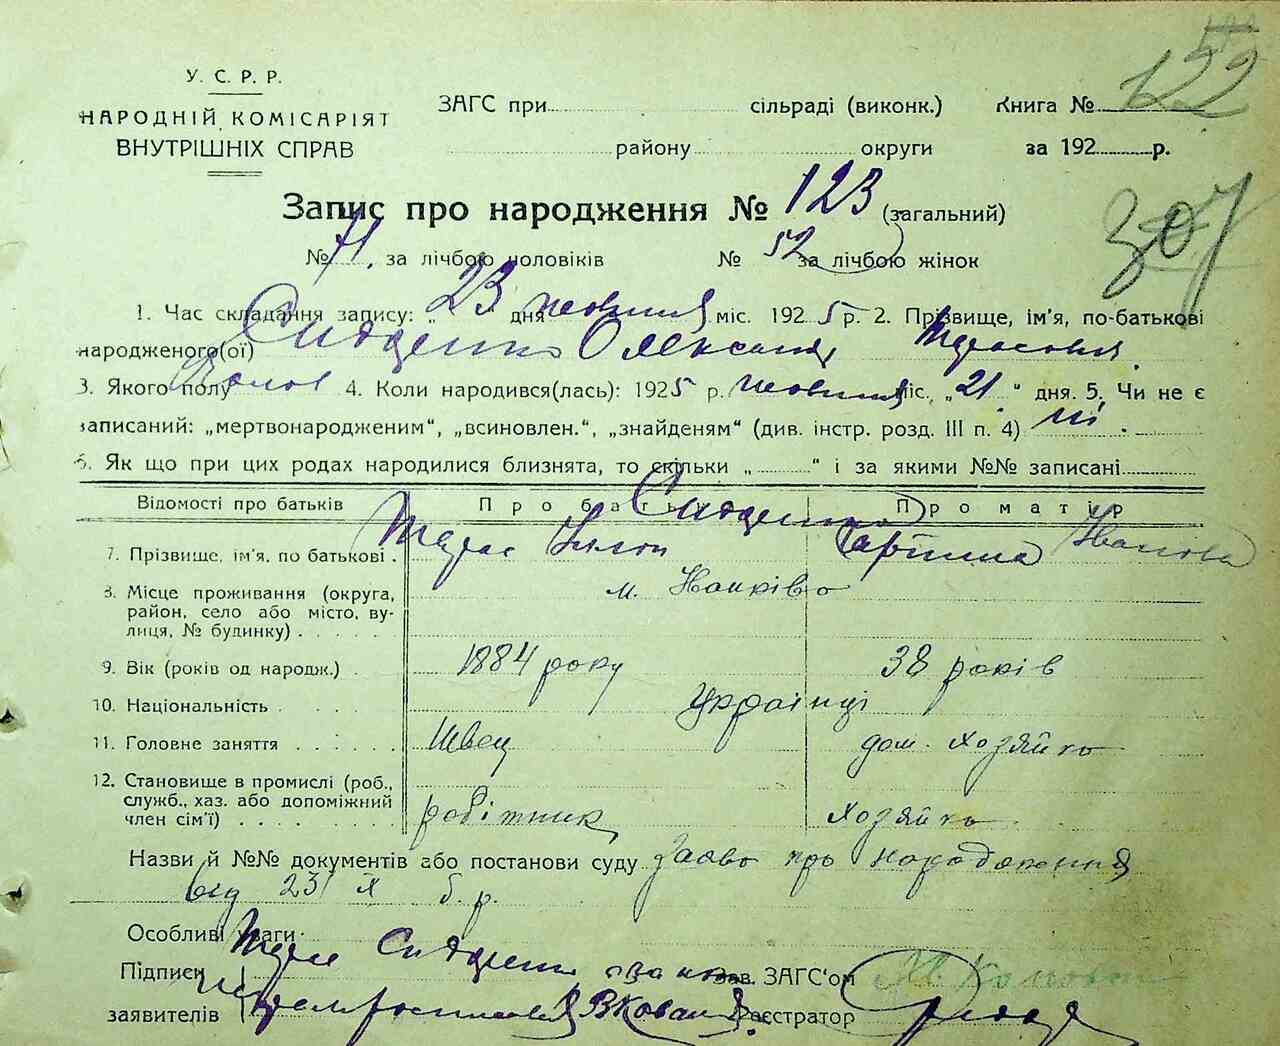 У. С. Р. Р.
НАРОДНІЙ КОМІСАРІЯТ
ВНУТРІШНІХ СПРАВ
ЗАГС при сільраді (виконк.) Книга №
122
району округи за 192 р.
Запис про народження № 123 (загальний)
307
№ 71, за лічбою чоловіків № 52 за лічбою жінок
1. Час складання запису: „23 дня жовтня міс. 1925 р. 2. Прізвище, ім'я, по-батькові
народженого(ої) Сидоренко Олександр Тарасович
3. Якого полу Чолов 4. Коли народився(лась): 1925 р. жовтня міс. „21“ дня. 5. Чи не є
записаний: „мертвонародженим“, „всиновлен.“, „знайденям“ (див. інстр. розд. III п. 4) ні.
6. Як що при цих родах народилися близнята, то скільки „ “ і за якими №№ записані
Відомості про батьків Про батька Про матір
Сидоренко
7. Прізвище, ім'я, по батькові . Тарас Іванова
8. Місце проживання (округа, район, село або місто, вулиця, № будинку) . . . . . м.
9. Вік (років од народж.) . 1884 року 38 років
10. Національність . . . . Українці
11. Головне заняття . . . . . . Швец дом. хозяйка
12. Становище в промислі (роб., служб., хаз. або допоміжний член сім'ї) . . . . . . . робітник хозяйка
Назви й №№ документів або постанови суду заява про народження
від 23/X б. р.
Особливі уваги
Підписи Тарас Сидоренко Зав. ЗАГС'ом
заявителів Реєстратор